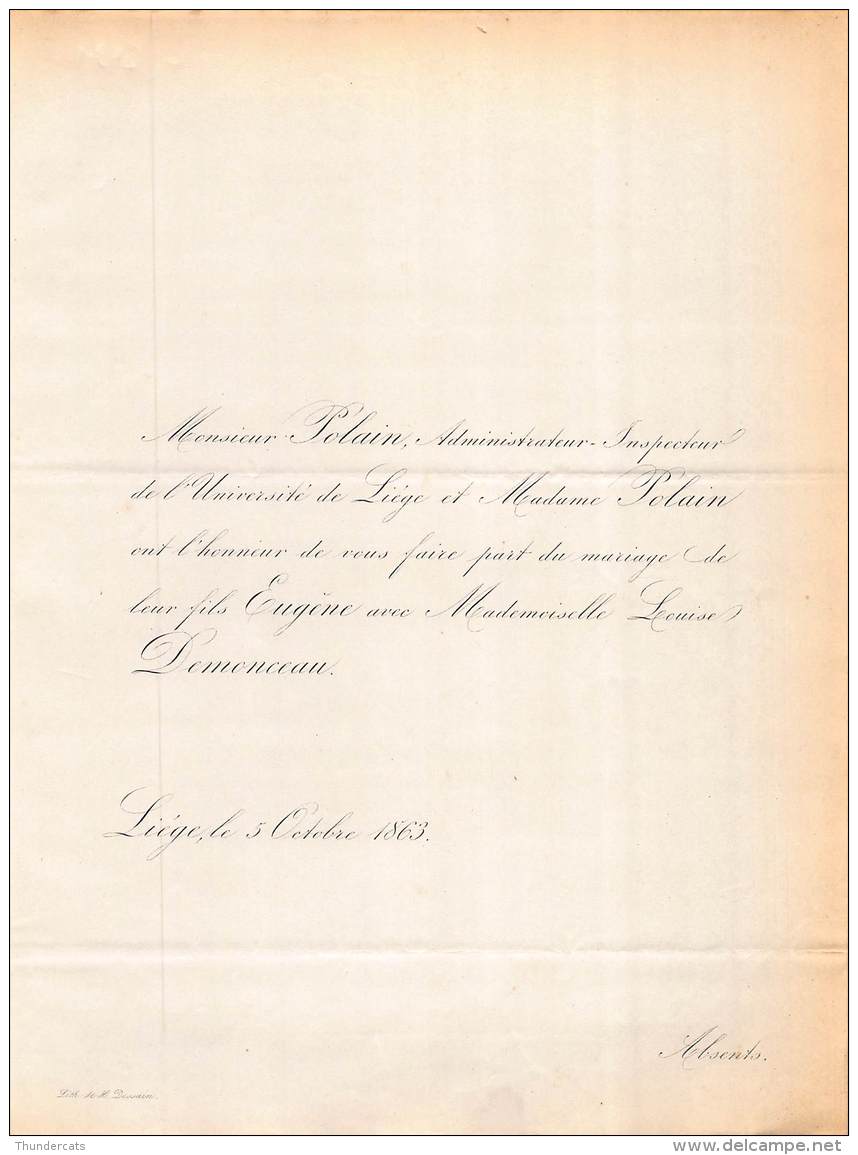 Monsieur Polain, Administrateur-Inspecteur
de l'Université de Liége et Madame Polain
ont l'honneur de vous faire part du mariage de
leur fils Eugène avec Mademoiselle Louise
Demonceau.
Liége, le 5 Octobre 1863.
Absents.
Lith. de H. Dessain.
Thundercats
delcampe.net